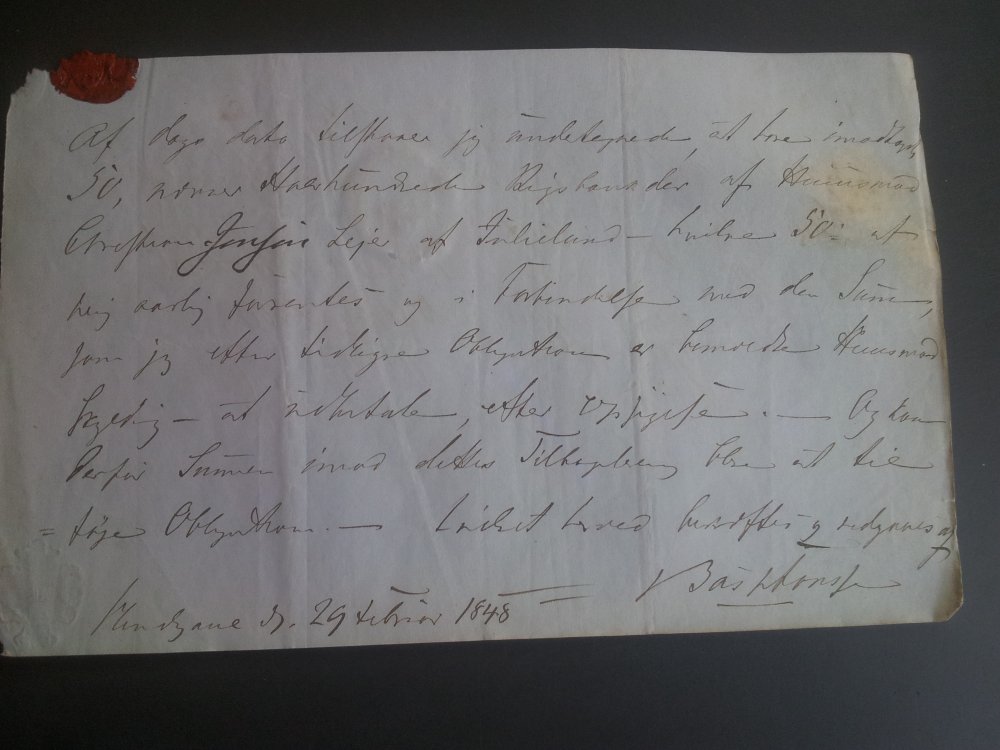 Af dags dato tilstaaer jeg undetegnede, at have imodtaget
50, Rigsbankdlr af Huusmand
Christian Jensen Leje af Julielund — hvilke 50 at
aarlig forrentes og i Forbindelse med den Sum,
som jeg efter tidligre Obligation er bemeldte Huusmand
skyldig — at udbetale, efter Opsigelse. — Og kan
derfor Summen imod dettes Tilbaglevering blive at til
= føje Obligation. — hvilket herved bekræftes og vedgaaes af
d. 29 Februar 1848